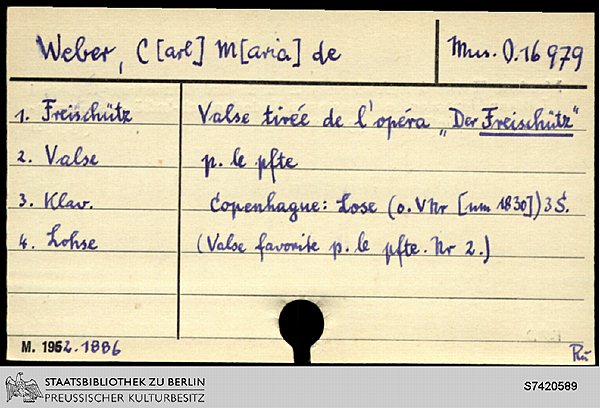 Weber, C[arl] M[aria] de
Mus. O. 16 979
1. Freischütz
Valse tirée de l'opéra „Der Freischütz"
2. Valse
p. le pfte
3. Klav.
Copenhague: Lose (o. VNr [um 1830]) 3 S.
4. Lohse
(Valse favorite p. le pfte. Nr 2.)
M. 1952.1886
Rü
STAATSBIBLIOTHEK ZU BERLIN
PREUSSISCHER KULTURBESITZ
S7420589